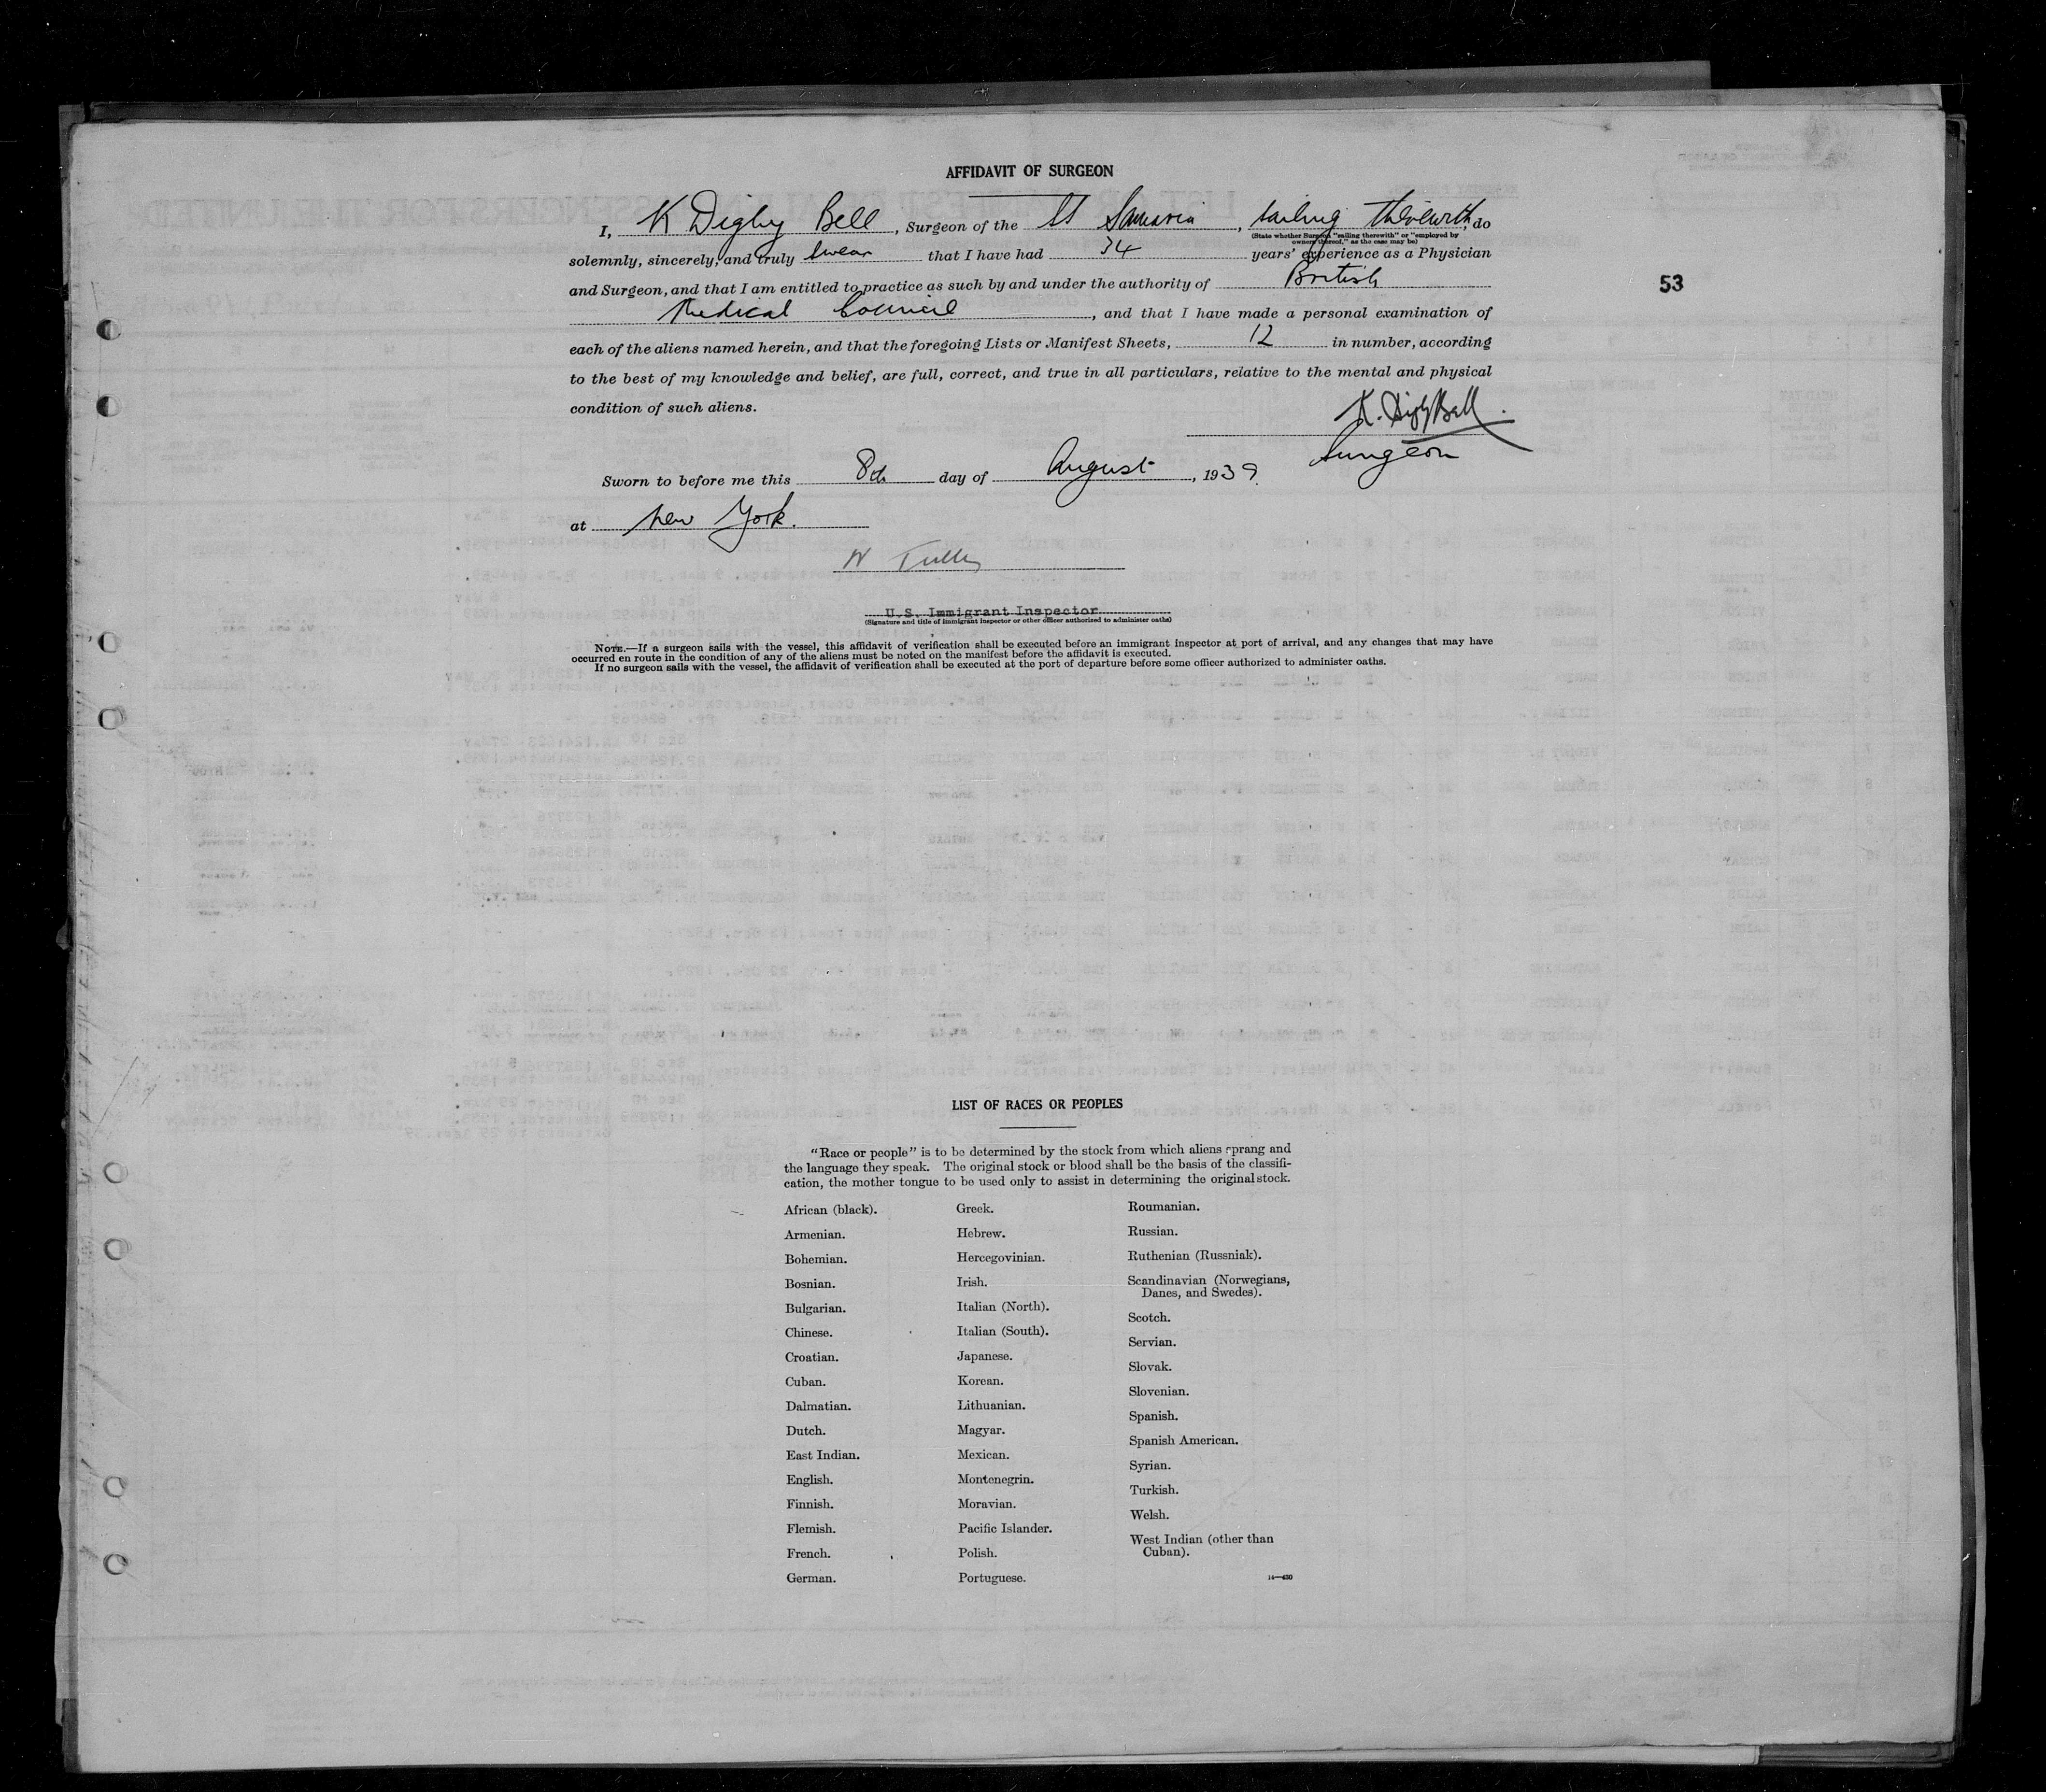 AFFIDAVIT OF SURGEON
I, K Digby Bell, Surgeon of the SS Samaria, sailing therewith, do
(State whether Surgeon "sailing therewith" or "employed by
owners thereof," as the case may be)
solemnly, sincerely, and truly swear that I have had 34 years' experience as a Physician
and Surgeon, and that I am entitled to practice as such by and under the authority of British
Medical Council, and that I have made a personal examination of
53
each of the aliens named herein, and that the foregoing Lists or Manifest Sheets, 12 in number, according
to the best of my knowledge and belief, are full, correct, and true in all particulars, relative to the mental and physical
condition of such aliens.
K. Digby Bell.
Surgeon
Sworn to before me this 8th day of August, 1939.
at New York.
W Tully
U.S. Immigrant Inspector
(Signature and title of immigrant inspector or other officer authorized to administer oaths)
NOTE.—If a surgeon sails with the vessel, this affidavit of verification shall be executed before an immigrant inspector at port of arrival, and any changes that may have
occurred en route in the condition of any of the aliens must be noted on the manifest before the affidavit is executed.
If no surgeon sails with the vessel, the affidavit of verification shall be executed at the port of departure before some officer authorized to administer oaths.
LIST OF RACES OR PEOPLES
"Race or people" is to be determined by the stock from which aliens sprang and
the language they speak. The original stock or blood shall be the basis of the classifi-
cation, the mother tongue to be used only to assist in determining the original stock.
African (black).
Armenian.
Bohemian.
Bosnian.
Bulgarian.
Chinese.
Croatian.
Cuban.
Dalmatian.
Dutch.
East Indian.
English.
Finnish.
Flemish.
French.
German.
Greek.
Hebrew.
Hercegovinian.
Irish.
Italian (North).
Italian (South).
Japanese.
Korean.
Lithuanian.
Magyar.
Mexican.
Montenegrin.
Moravian.
Pacific Islander.
Polish.
Portuguese.
Roumanian.
Russian.
Ruthenian (Russniak).
Scandinavian (Norwegians,
Danes, and Swedes).
Scotch.
Servian.
Slovak.
Slovenian.
Spanish.
Spanish American.
Syrian.
Turkish.
Welsh.
West Indian (other than
Cuban).
14—430